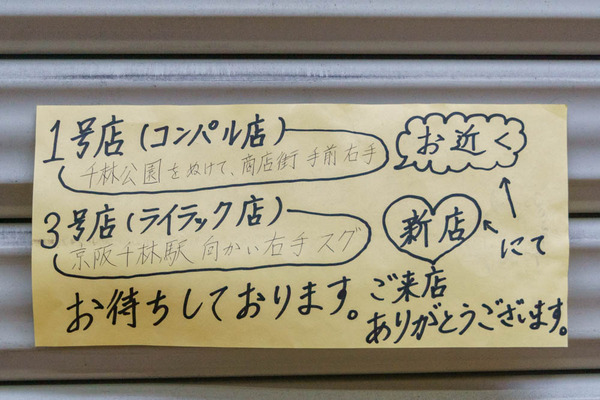 1号店(コンパル店)
千林公園をぬけて、商店街 手前右手
お近く
3号店(ライラック店)
京阪千林駅 向かい右手 スグ
新店
にて
お待ちしております。
ご来店
ありがとうございます。